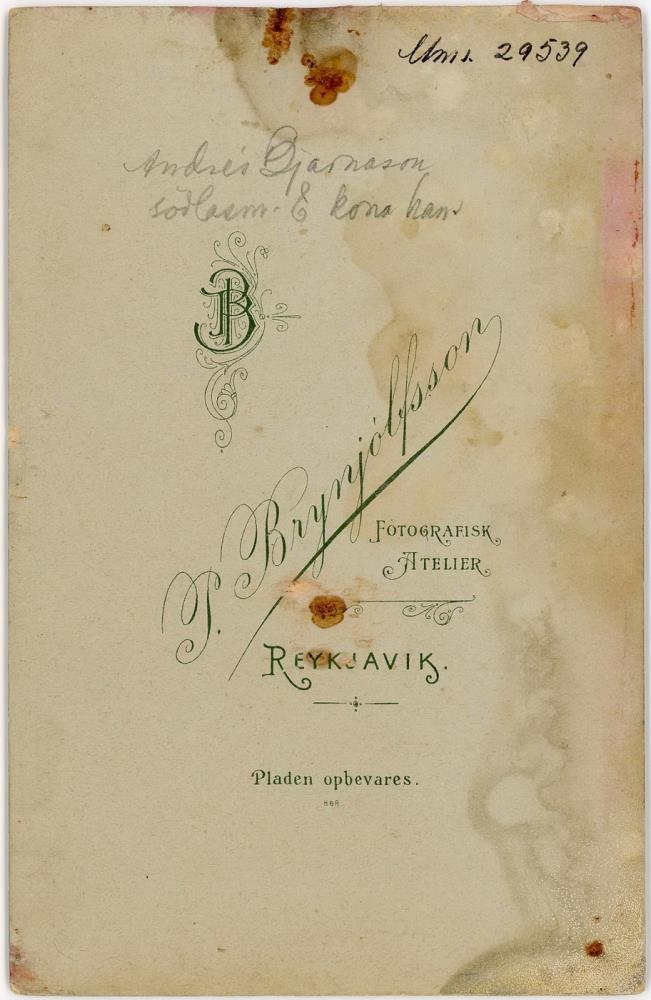 Mms. 29539
Andrés Bjarnason
söðlasm. & kona hans
PB
P. Brynjólfsson
FOTOGRAFISK
ATELIER
REYKJAVIK.
Pladen opbevares.